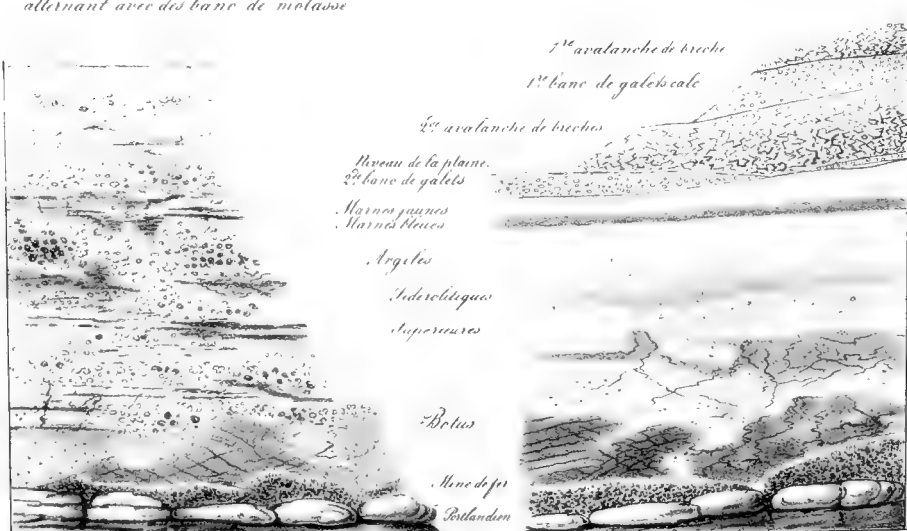 alternant avec des banc de molasse
1re avalanche de breche
1er banc de galets calc
2de avalanche de breches
Niveau de la plaine.
2de banc de galets
Marnes jaunes
Marnes bleues
Argiles
Siderolitiques
Superieures
Bolus
Mine de fer
Portlandien